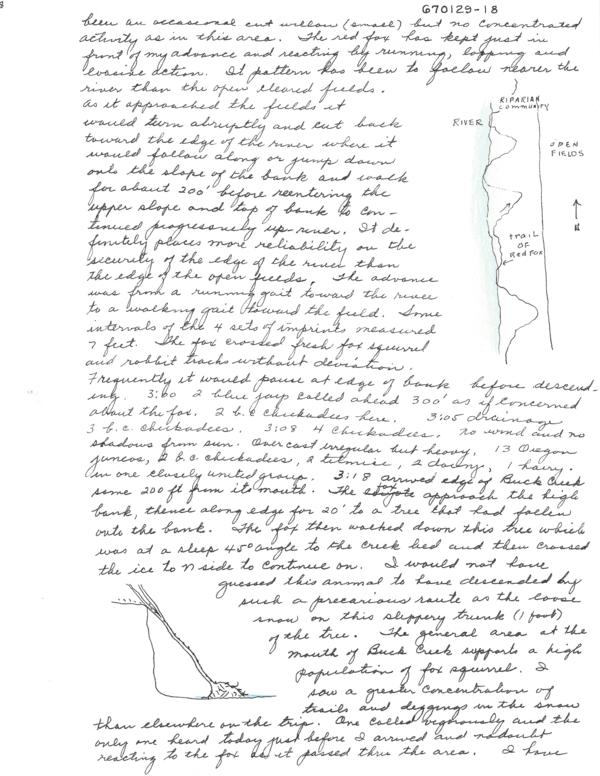 G70129-18
been an occasional cut willow (small) but no concentrated
activity as in this area. The red fox has kept just in
front of my advance and reacting by running, lopping and
evasive action. It pattern has been to follow nearer the
river than the open cleared fields.
as it approached the fields it
would turn abruptly and cut back
toward the edge of the river where it
would follow along or jump down
onto the slope of the bank and walk
for about 200' before reentering the
upper slope and top of bank to con-
tinued progressively up-river. It de-
finitely places more reliability on the
security of the edge of the river than
the edge of the open fields. The advance
was from a running gait toward the river
to a walking gait toward the field. Some
intervals of the 4 sets of imprints measured
7 feet. The fox crossed fresh fox squirrel
and rabbit tracks without deviation.
RIPARIAN
COMMUNITY
RIVER
OPEN
FIELDS
N
trail
OF
RED FOX
Frequently it would pause at edge of bank before descend-
ing. 3:00 2 blue jays called ahead 300' as if concerned
about the fox. 2 b.c chickadees here. 3:05 drainage
3 b.c. chickadees. 3:08 4 chickadees, no wind and no
shadows from sun. Overcast irregular but heavy. 13 Oregon
juncos, 2 b.c. chickadees, 2 titmice, 2 downy, 1 hairy.
in one closely united group. 3:18 arrived edge of Buck Creek
some 200 ft from its mouth. The fox approach the high
bank, thence along edge for 20' to a tree that had fallen
onto the bank. The fox then walked down this tree which
was at a steep 45° angle to the creek bed and then crossed
the ice to N side to continue on. I would not have
guessed this animal to have descended by
such a precarious route as the loose
snow on this slippery trunk (1 foot)
of the tree. The general area at the
mouth of Buck Creek supports a high
population of fox squirrel. I
saw a greater concentration of
trails and diggings in the snow
than elsewhere on the trip. One called vigorously and the
only one heard today just before I arrived and no doubt
reacting to the fox as it passed thru the area. I have